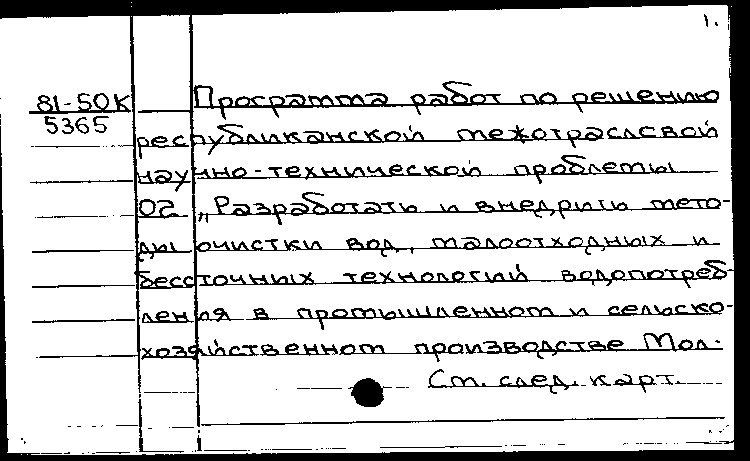 1.
81-50К Программа работ по решению
5365
республиканской межотраслевой
научно-технической проблемы
02 „Разработать и внедрить мето-
ды очистки вод, малоотходных и
бессточных технологий водопотреб-
ления в промышленном и сельско-
хозяйственном производстве Мол-
См. след. карт.